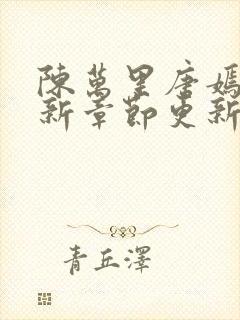 陳萬里唐嫣
新章節更新
青丘澤